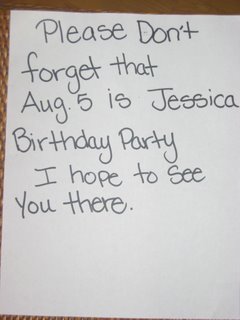 Please Don't
forget that
Aug. 5 is Jessica
Birthday Party
I hope to see
You there.